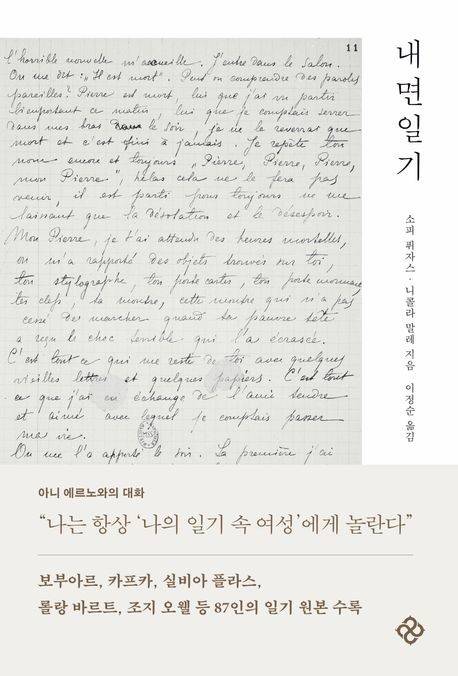 11
l'horrible nouvelle m'accueille. J'entre dans le salon.
On me dit : „Il est mort". Peut on comprendre des paroles
pareilles? Pierre est mort, lui que j'ai vu partir
bien portant ce matin, lui que je comptais serrer
dans mes bras le soir, je ne le reverrai que
mort et c'est fini à jamais. Je répète ton
nom encore et toujours „Pierre, Pierre, Pierre,
mon Pierre", hélas cela ne le fera pas
venir, il est parti pour toujours ne me
laissant que la désolation et le désespoir.
Mon Pierre, je t'ai attendu des heures mortelles,
on m'a rapporté des objets trouvés sur toi,
ton stylographe, ton porte cartes, ton porte monnaie,
tes clefs, ta montre, cette montre qui n'a pas
cessé de marcher quand ta pauvre tête
a reçu le choc terrible qui l'a écrasée.
C'est tout ce qui me reste de toi avec quelques
vieilles lettres et quelques papiers. C'est tout
ce que j'ai en échange de l'ami tendre
et aimé avec lequel je comptais passer
ma vie.
On me l'a apporté le soir. La première j'ai
내면일기
소피 퓌자스·니콜라 말레 지음 이정순 옮김
아니 에르노와의 대화
“나는 항상 ‘나의 일기 속 여성’에게 놀란다”
보부아르, 카프카, 실비아 플라스,
롤랑 바르트, 조지 오웰 등 87인의 일기 원본 수록